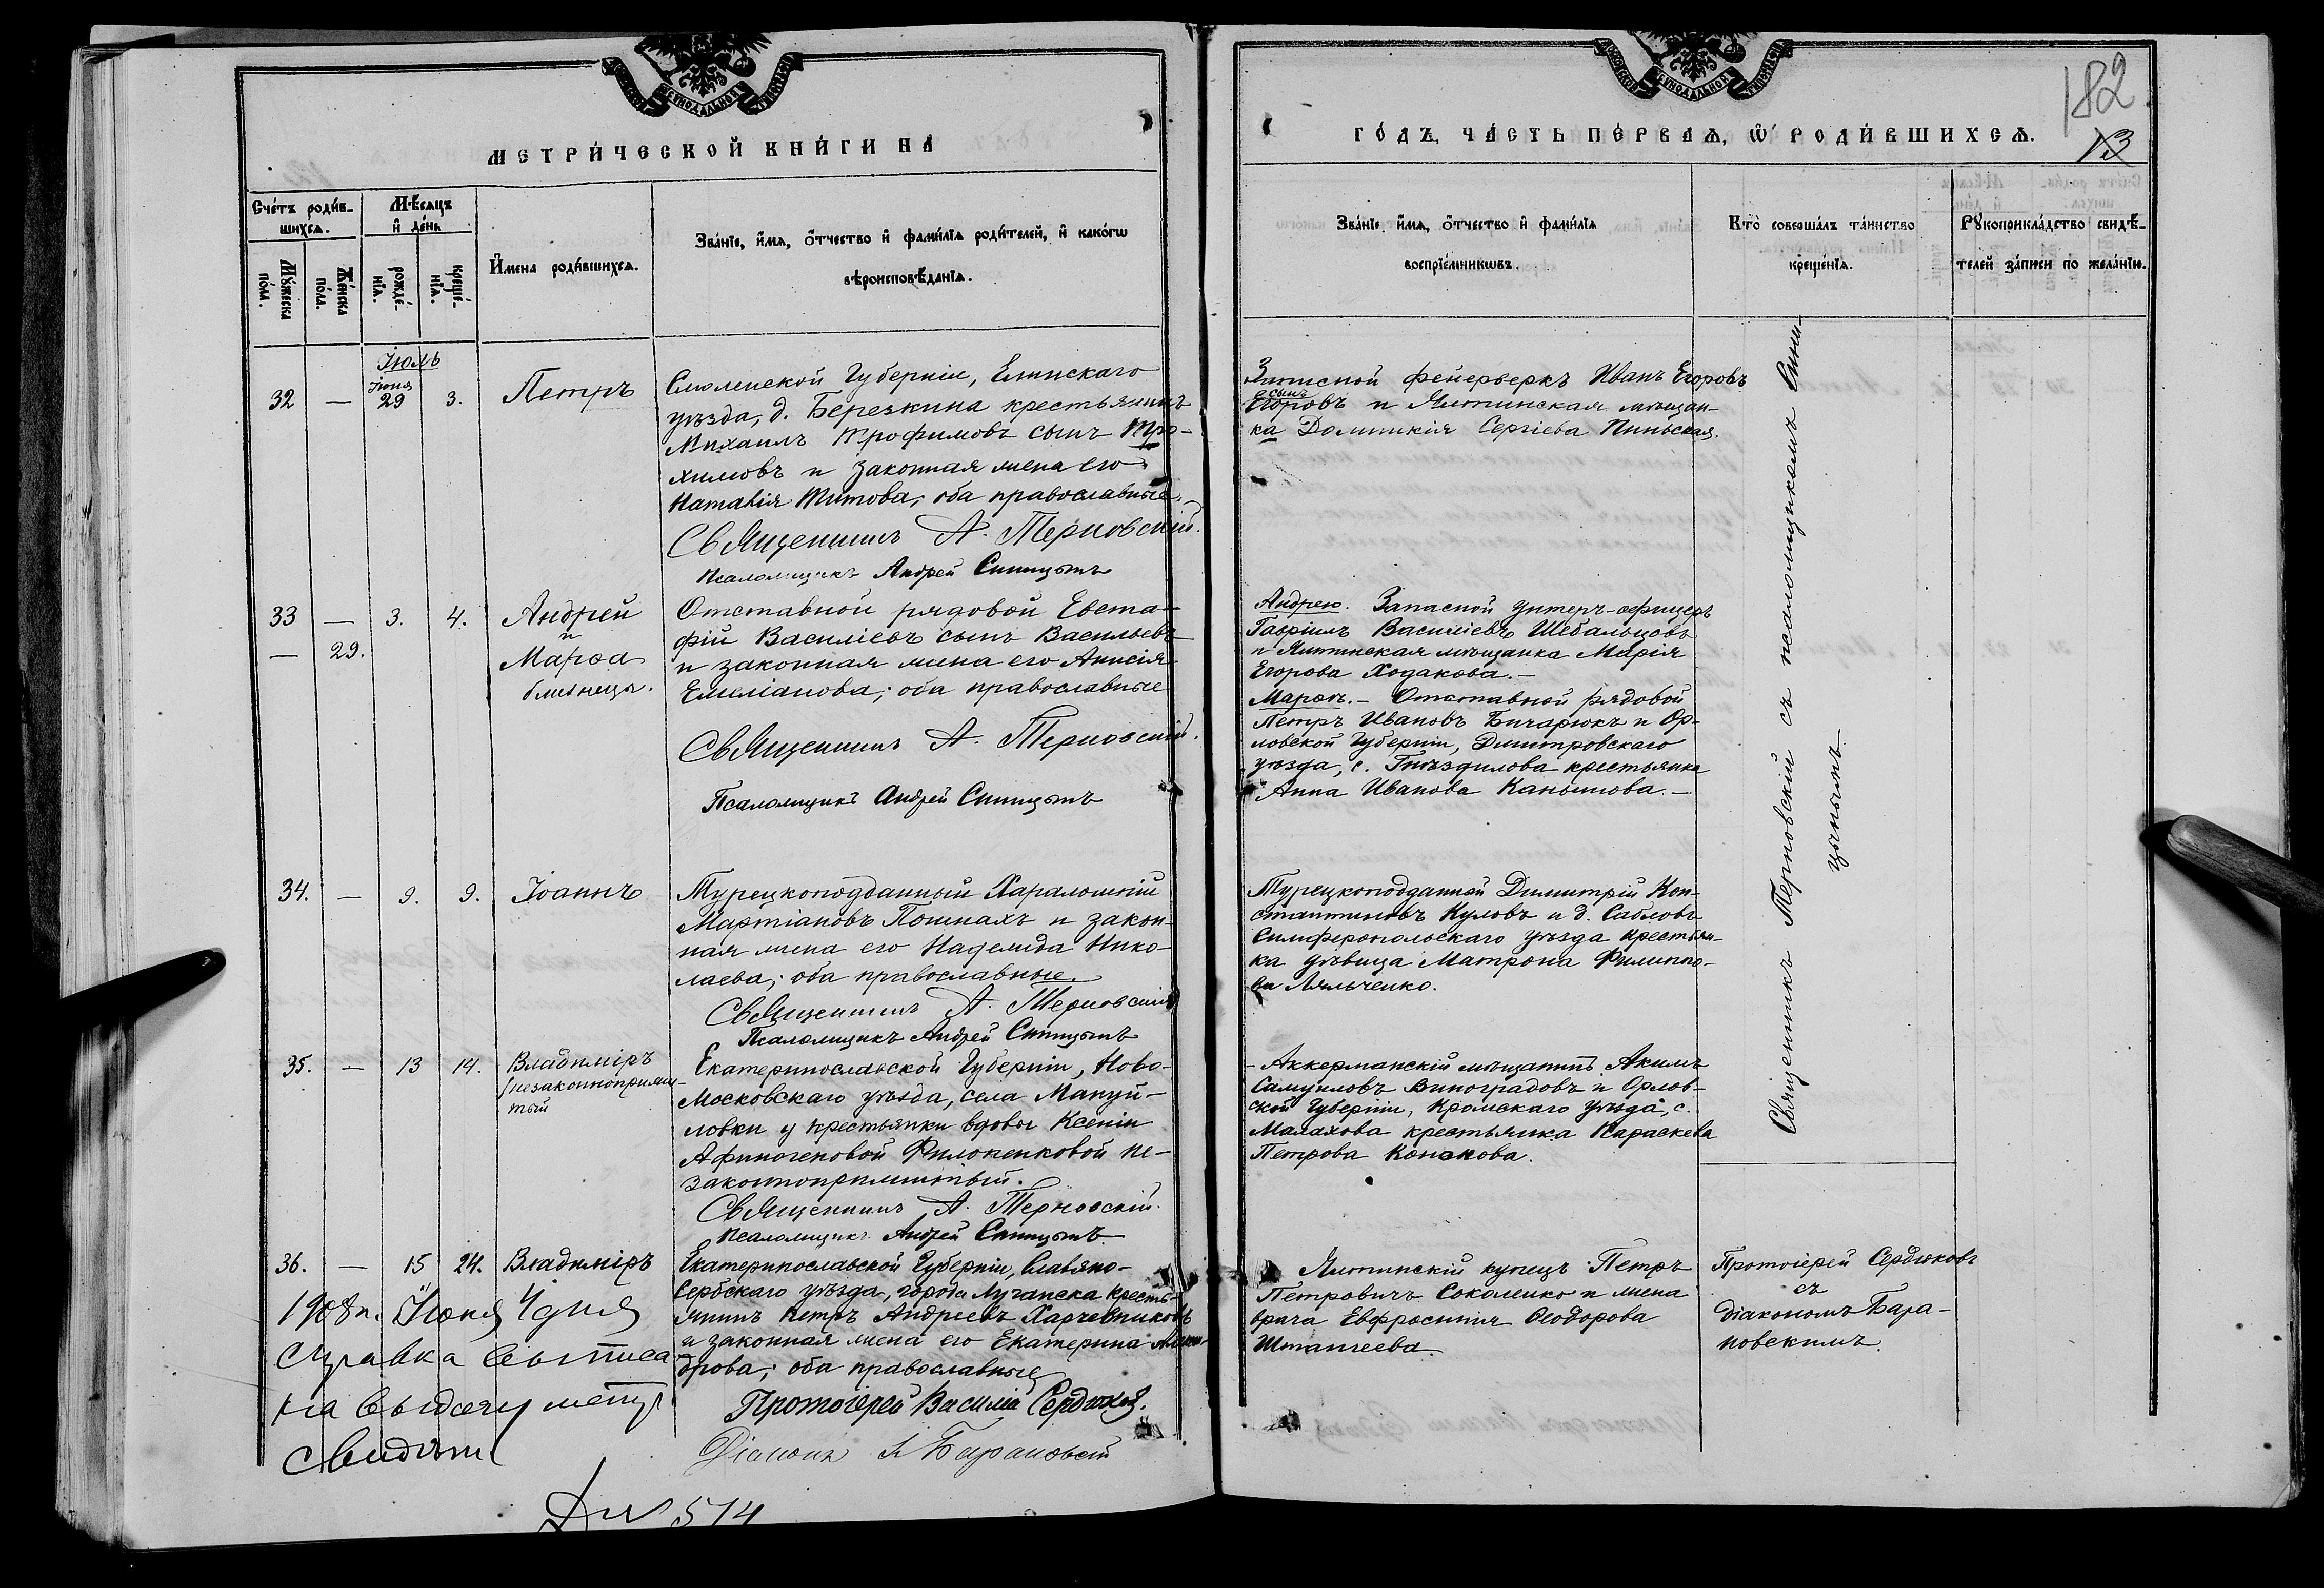 МЕТРИ́ЧЕСКОЙ КНИ́ГИ НА
Сче́тъ роди́в-
шихсѧ.
Мѣ́сѧцъ
и҆ де́нь
Мꙋ́жеска
по́ла.
Же́нска
по́ла.
рожде́-
нїѧ.
креще́-
нїѧ.
И҆мена роди́вшихсѧ.
Зва́нїе, и҆́мѧ, ѻ҆́тчество и҆ фами́лїѧ роди́телей, и҆ како́гѡ
вѣроисповѣ́данїѧ.
Іюль
32 — Іюня 29 3. Петръ
Смоленской Губерніи, Ельнскаго
уѣзда, д. Березкина крестьянинъ
Михаилъ Трофимовъ сынъ Тро-
химовъ и законная жена его
Наталія Титова, оба православные.
Священникъ А. Терновскій.
Псаломщикъ Андрей Синицынъ
33 — 3. 4. Андрей
и
— 29. Марѳа
близнецы.
Отставной рядовой Евста-
фій Василіевъ сынъ Васильевъ
и законная жена его Анисія
Емиліанова; оба православные
Священникъ А. Терновскій.
Псаломщикъ Андрей Синицынъ
34. — 9. 9. Іоаннъ
Турецкоподданный Харалампій
Мартіановъ Пошнахъ и закон-
ная жена его Надежда Нико-
лаева; оба православные.
Священникъ А. Терновскій
Псаломщикъ Андрей Синицынъ
35. — 13 14. Владиміръ
/незаконноприжи-
тый
Екатеринославской Губерніи, Ново-
Московскаго уѣзда, села Мануй-
ловки у крестьянки вдовы Ксеніи
Афиногеновой Филоненковой не-
законноприжитый.
Священникъ А. Терновскій.
Псаломщикъ Андрей Синицынъ
36. — 15 24. Владиміръ
Екатеринославской Губерніи, Славяно-
Сербскаго уѣзда, города Луганска кресть-
янинъ Петръ Андреевъ Харчевниковъ
и законная жена его Екатерина Алексан-
дрова; оба православные
Протоіерей Василій Сердюковъ.
Діаконъ Барановскій
1908 г. Іюня 4 дня
Справка выписа
на выдачу метр.
свидѣт
514
ГО́ДЪ, ЧА́СТЬ ПЕ́РВАѦ, Ѡ҆ РОДИ́ВШИХСѦ.
182
13
Зва́нїе, и҆́мѧ, ѻ҆́тчество и҆ фами́лїѧ
воспрїе́мникѡвъ.
Кто̀ соверша́лъ та́инство
креще́нїѧ.
Рꙋкоприкла́дство свидѣ́-
телей за́писи по жела́нїю.
Запасной фейерверкъ Иванъ Егоровъ
сынъ
Егоровъ и Ялтинская мѣщан-
ка Домникія Сергіева Пиньская.
Андрею. Запасной унтеръ-офицеръ
Гавріилъ Василіевъ Шебальцовъ
и Ялтинская мѣщанка Марія
Егорова Ходакова.—
Марѳѣ.— Отставной рядовой
Петръ Ивановъ Бичарюкъ и Ор-
ловской Губерніи, Дмитровскаго
уѣзда, с. Гнѣздилова крестьянка
Анна Иванова Каньшова.—
Турецкоподданный Димитрій Кон-
стантиновъ Куловъ и д. Сабловъ
Симферопольскаго уѣзда крестьян-
ка дѣвица Матрона Филиппо-
ва Ляльченко.
- Аккерманскій мѣщанинъ Акимъ
Самуиловъ Виноградовъ и Орлов-
ской Губерніи, Кромскаго уѣзда, с.
Малахова крестьянка Параскева
Петрова Конакова.
Священникъ Терновскій съ псаломщикомъ Сини-
цынымъ.
Ялтинскій купецъ Петръ
Петровичъ Соколенко и жена
врача Евфросинія Ѳеодорова
Штангеева.
Протоіерей Сердюковъ
съ
діакономъ Бара-
новскимъ.